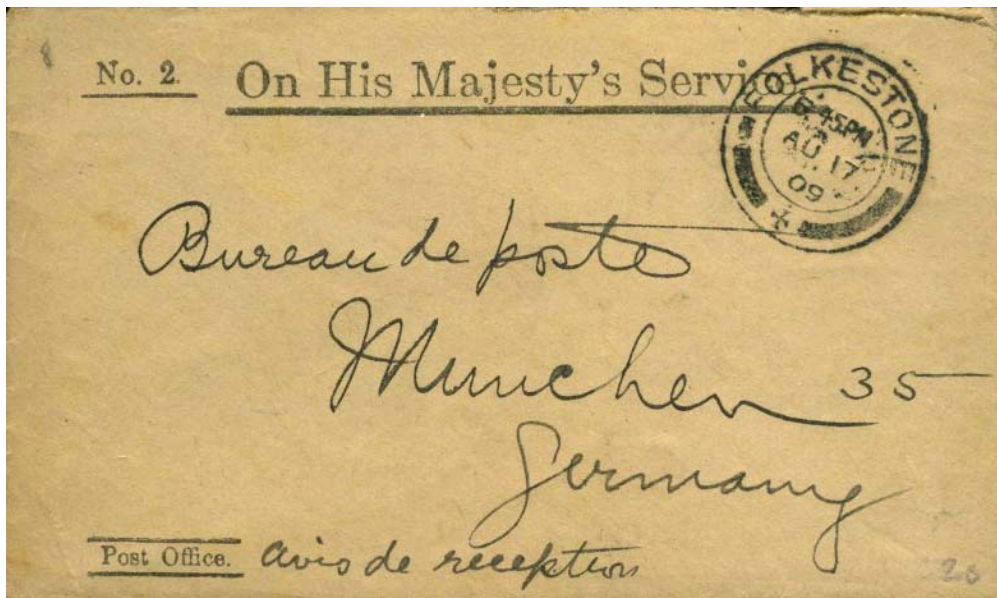 No. 2.
On His Majesty's Service.
FOLKESTONE
6.45PM
AU 17
09
Bureau de poste
Munchen 35
Germany
Post Office.
avis de reception